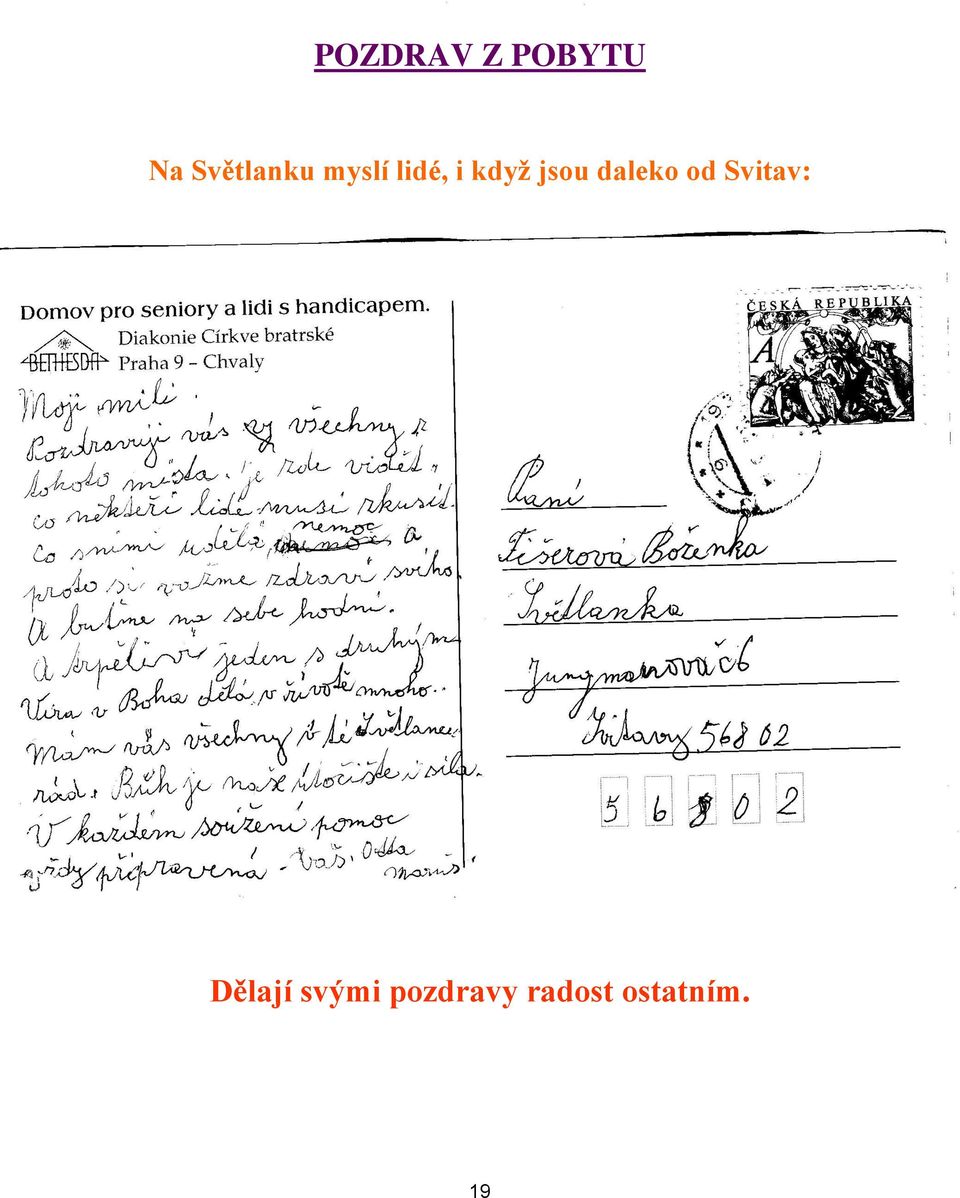 POZDRAV Z POBYTU
Na Světlanku myslí lidé, i když jsou daleko od Svitav:
Domov pro seniory a lidi s handicapem.
BETHESDA
Diakonie Církve bratrské
Praha 9 – Chvaly
Moji milí.
Pozdravuji vás všechny z
tohoto místa. je zde vidět,
co někteří lidé musí zkusit.
Co s nimi udělá nemoc a
proto si važme zdraví svího
A buťme na sebe hodní.
A trpěliví jeden s druhým
Víra v Boha dělá v životě mnoho..
Mám vás všechny v té Světlance
rád. Bůh je naše útočiště i síla.
V každém soužení pomoc
vždy připravená - Vaš. Otta
ČESKÁ REPUBLIKA
A
Paní
Fišerová Boženka
Světlanka
Jungmanova č6
Svitavy 568 02
5 6 8 0 2
Dělají svými pozdravy radost ostatním.
19